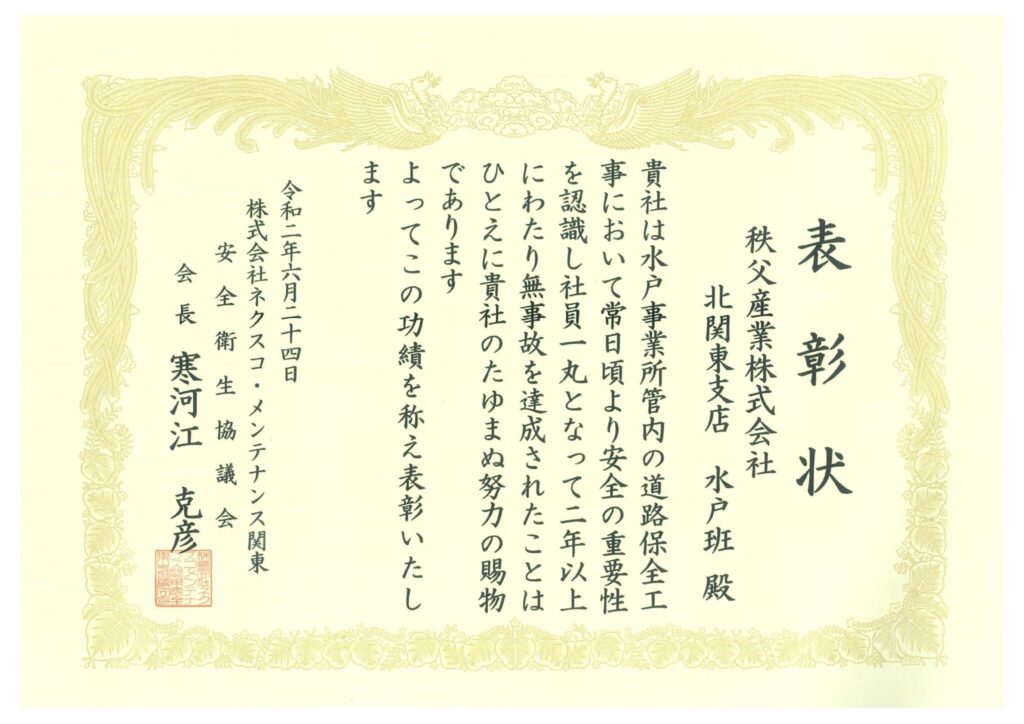 表彰状
秩父産業株式会社
北関東支店 水戸班 殿
貴社は水戸事業所管内の道路保全工
事において常日頃より安全の重要性
を認識し社員一丸となって二年以上
にわたり無事故を達成されたことは
ひとえに貴社のたゆまぬ努力の賜物
であります
よってこの功績を称え表彰いたし
ます
令和二年六月二十四日
株式会社ネクスコ・メンテナンス関東
安全衛生協議会
会長 寒河江 克彦